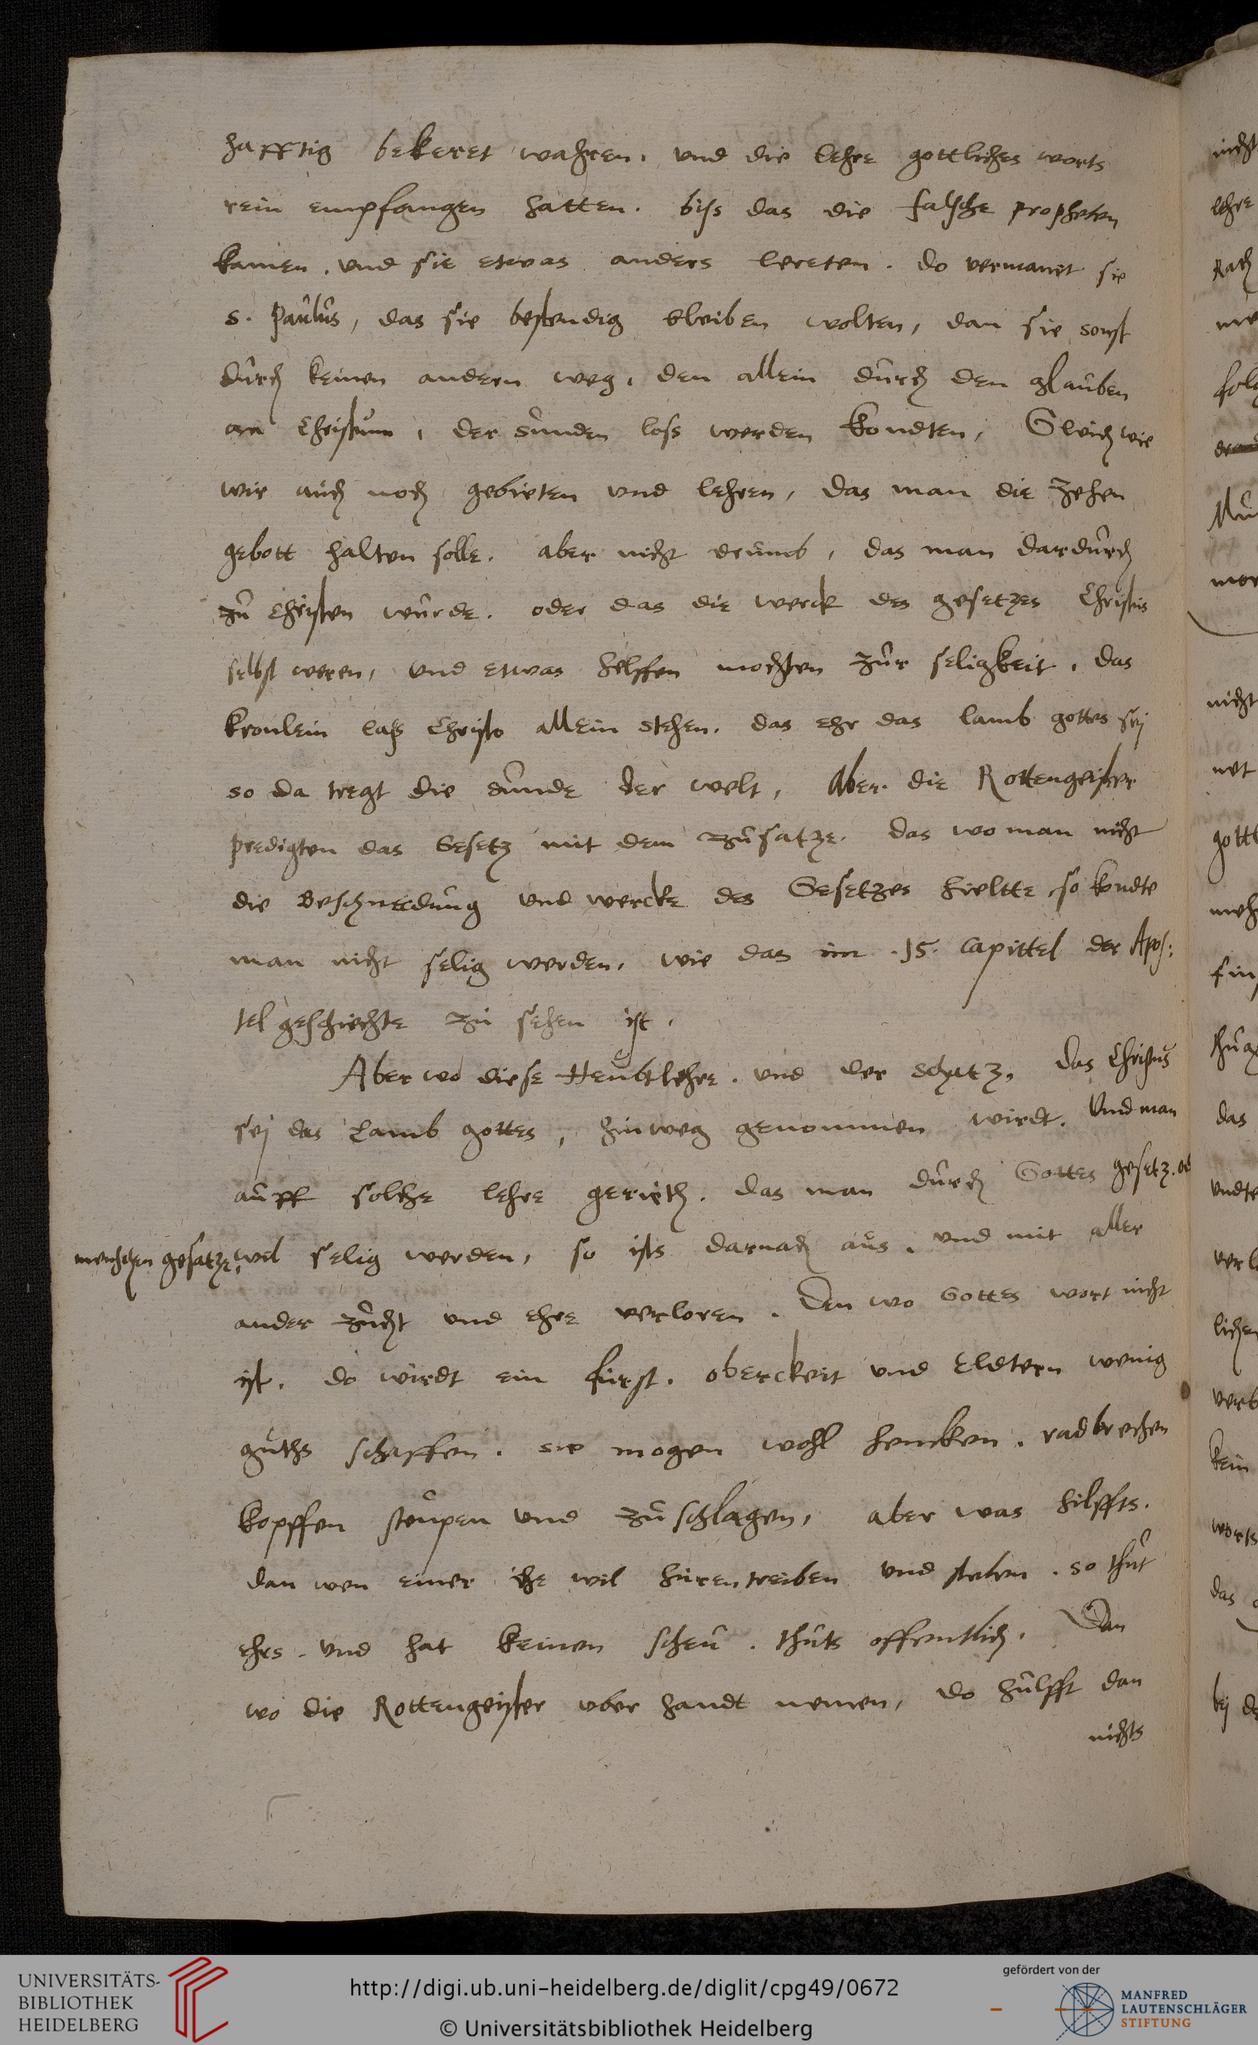 hafftig bekeret wahren, und die lehre gottliches worts
rein empfangen hatten. biss das die falsche propheten
kamen, und sie etwas anders lereten. do vermanet sie
S. Paulus, das sie bestendig bleiben wolten, dan sie sonst
durch keinen andern weg, den allein durch den glauben
an Christum, der sunden loss werden kondten, Gleich wie
wir auch noch gebieten und lehren, das man die Zehen
gebott halten solle. aber nicht drumb, das man dardurch
zu Christen wurde. oder das die werck des gesetzes Christus
selbst weren, und etwas helffen mochten zur seligkeit, das
kronlein lass Christo allein stehen. das ehr das lamb gottes sej
so da tregt die sunde der welt, Aber die Rottengeister
predigten das Gesetz mit dem zusatze. das wo man nicht
die Beschneidung und wercke des Gesetzes hieltte so kondte
man nicht selig werden, wie das im .15. Capittel der Apos:
telgeschichte zu sehen ist.
Aber wo diese Heubtlehre. und der schatz, das Christus
sej das Lamb gottes, hinweg genommen wirdt. Und man
auff solche lehre gerieth. das man durch Gottes gesetz. od
menschen gesatze, wil selig werden, so ists darnach aus, und mit aller
ander zucht und ehre verloren. Den wo Gottes wort nicht
ist. do wirdt ein furst. oberckeit und Eldtern wenig
guths schaffen. sie mogen wohl hencken. radbrechen
kopffen steupen und zuschlagen, aber was hilffts.
dan wen einer ihe wil hurentreiben und stelen. so thut
ehrs. und hat keinen scheu. thuts offentlich. Dan
wo die Rottengeister uber handt nemen, do hulfft dan
nichts
nicht
lehre
gott
das
kein
worts
das
UNIVERSITÄTS-
BIBLIOTHEK
HEIDELBERG
http://digi.ub.uni-heidelberg.de/diglit/cpg49/0672
© Universitätsbibliothek Heidelberg
gefördert von der
MANFRED
LAUTENSCHLÄGER
STIFTUNG